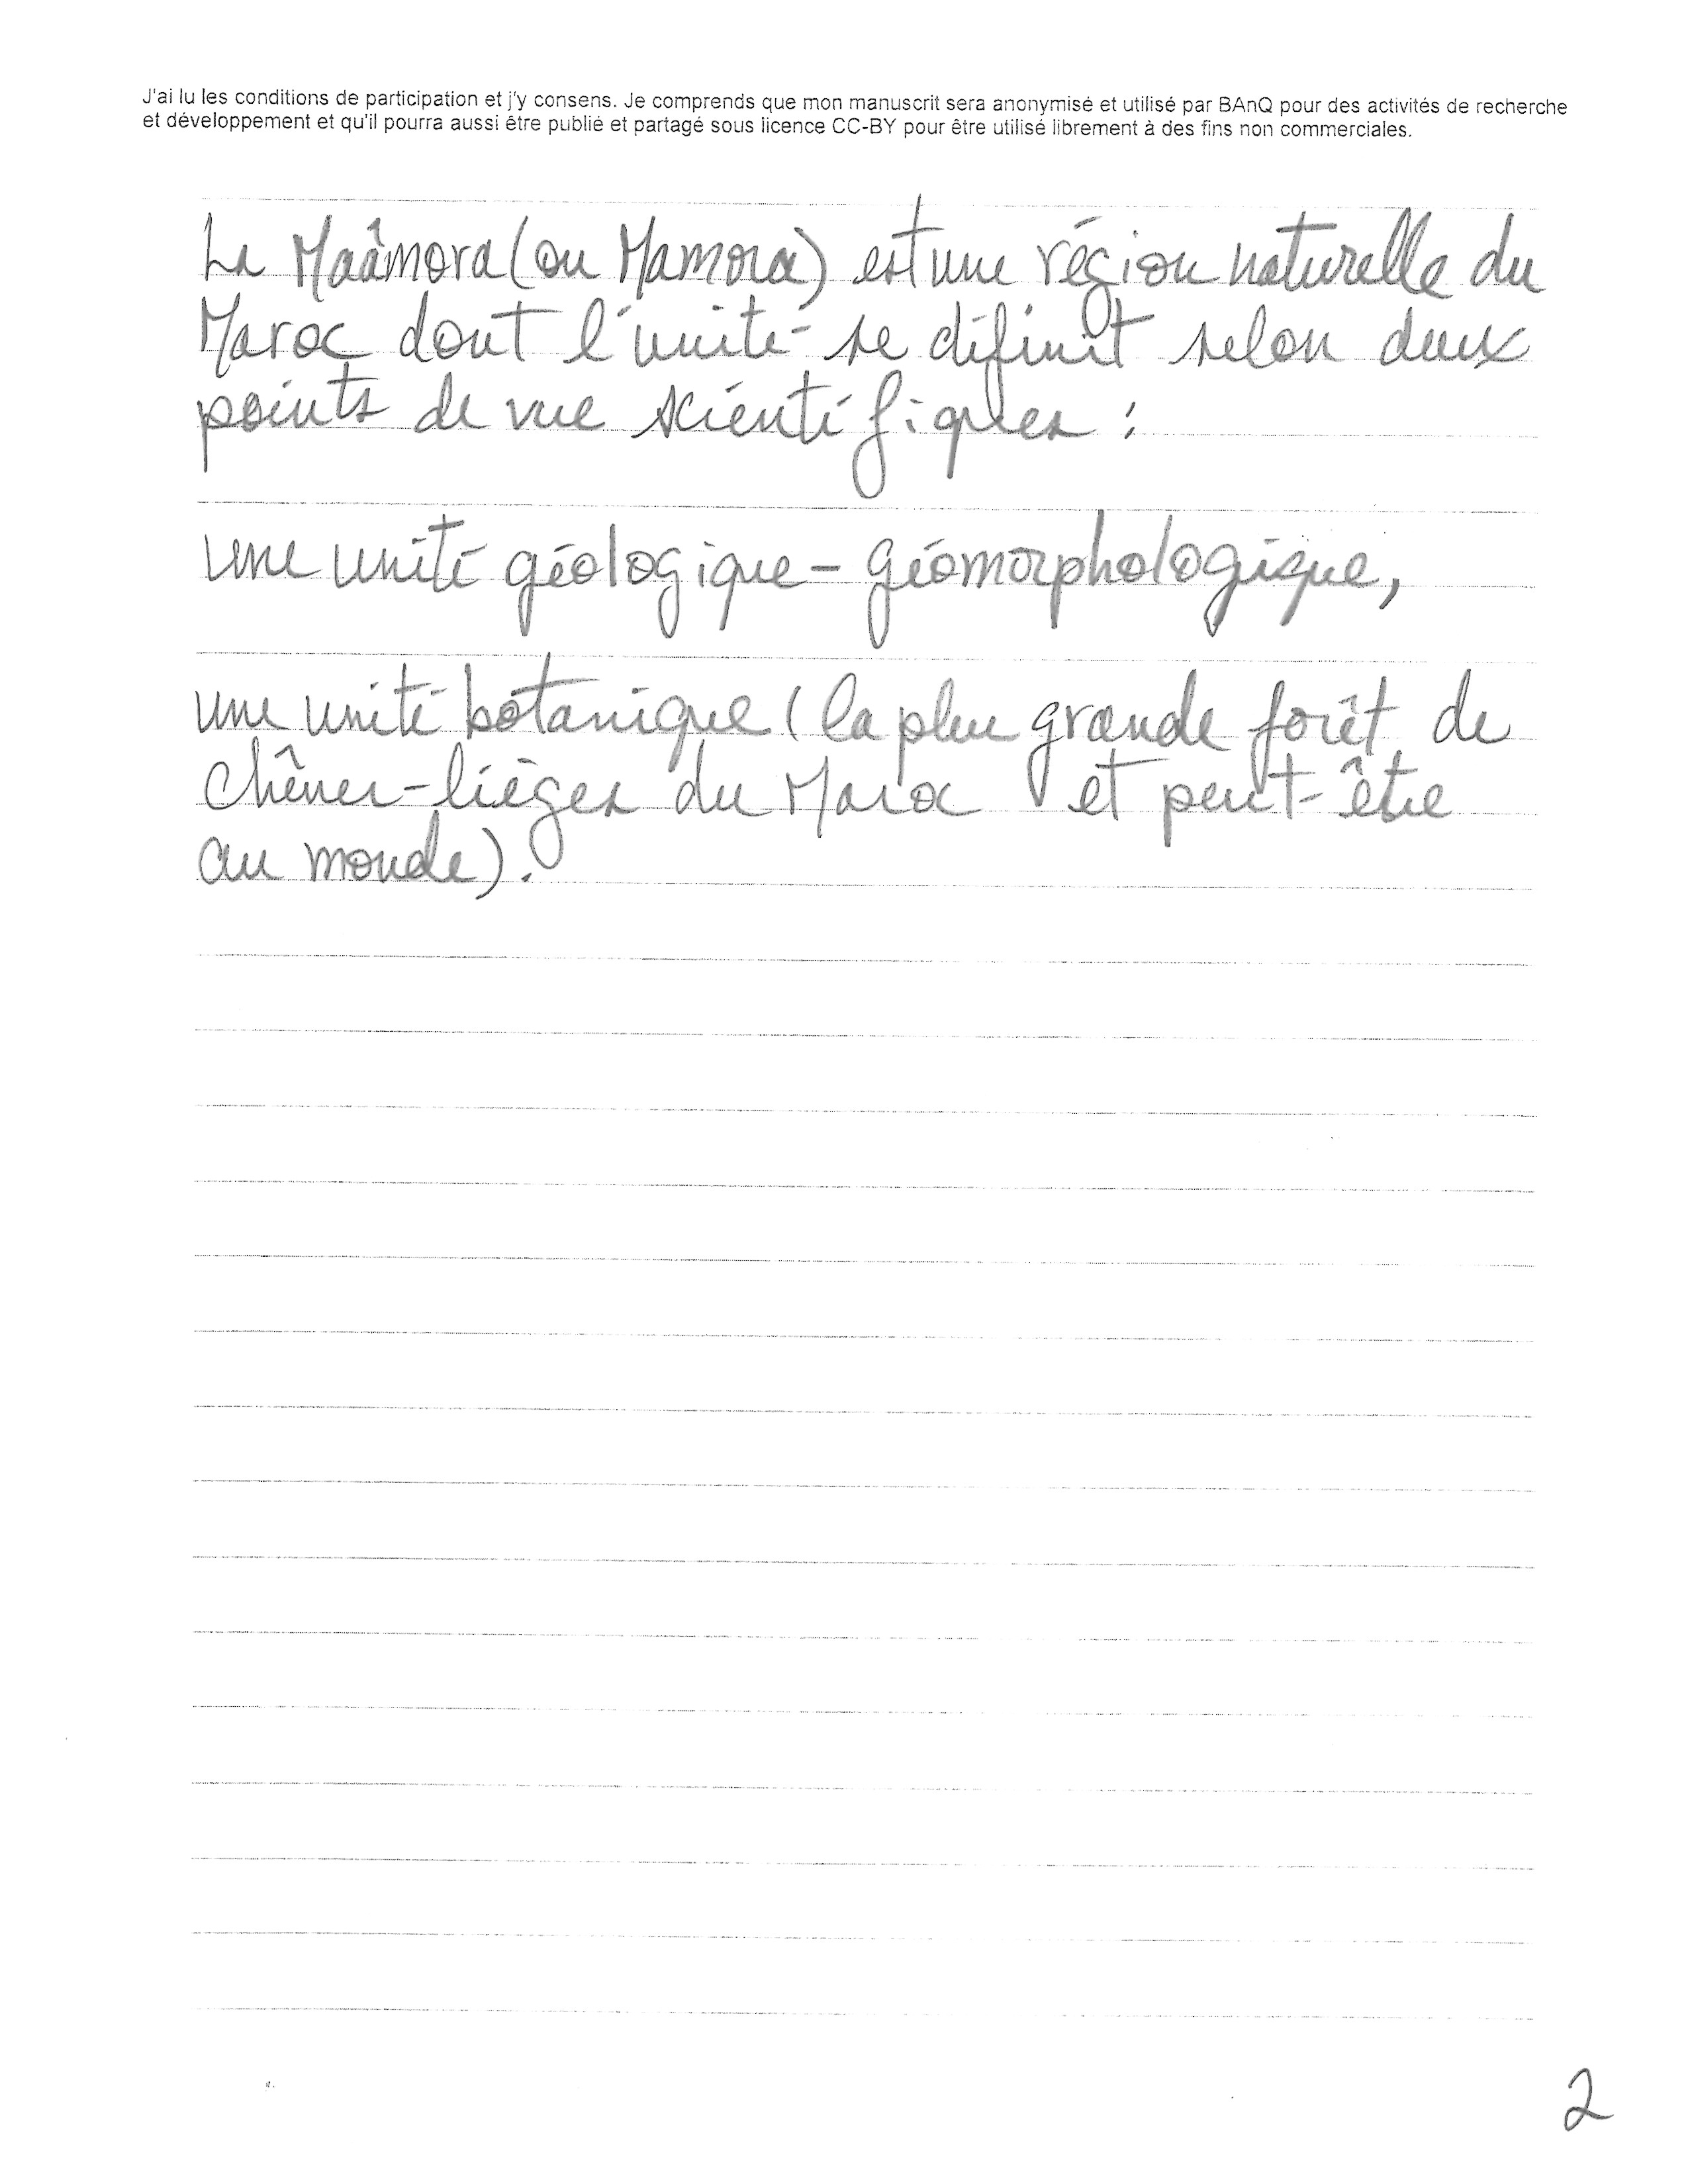 J'ai lu les conditions de participation et j'y consens. Je comprends que mon manuscrit sera anonymisé et utilisé par BAnQ pour des activités de recherche
et développement et qu'il pourra aussi être publié et partagé sous licence CC-BY pour être utilisé librement à des fins non commerciales.
La Maâmora (ou Mamora) est une région naturelle du
Maroc dont l'unité se définit selon deux
points de vue scientifiques :
une unité géologique - géomorphologique,
une unité botanique (la plus grande forêt de
chênes-lièges du Maroc et peut-être
au monde).
2